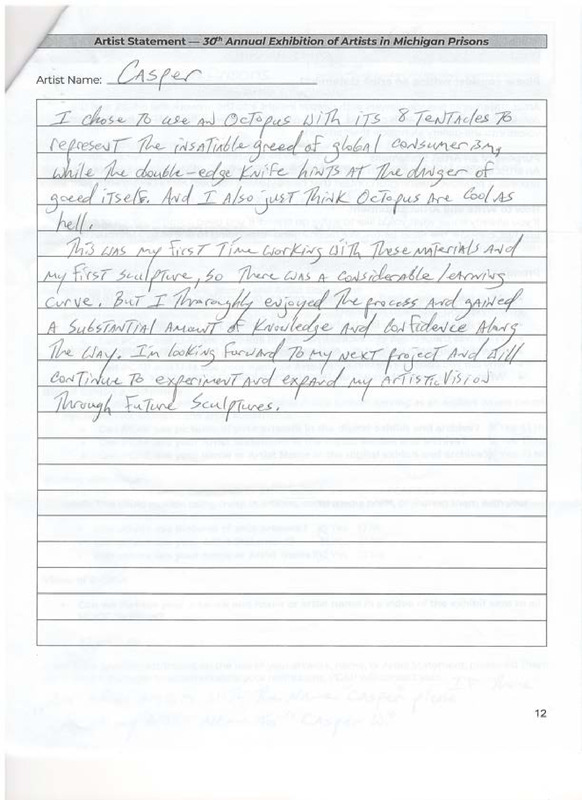 Artist Statement — 30th Annual Exhibition of Artists in Michigan Prisons
Artist Name: Casper
I chose to use an Octopus with its 8 Tentacles to
represent the insatiable greed of global consumerism,
while the double-edge Knife hints at the danger of
greed itself. And I Also just Think Octopus Are Cool As
hell.
This was my first Time working with These materials And
my first sculpture, so There was a considerable learning
curve. But I Thoroughly enjoyed The process and gained
A Substantial Amount of Knowledge And Confidence Along
The way. I'm looking forward To my next project And will
continue To experiment And expand my Artistic Vision
Through Future Sculptures.
12